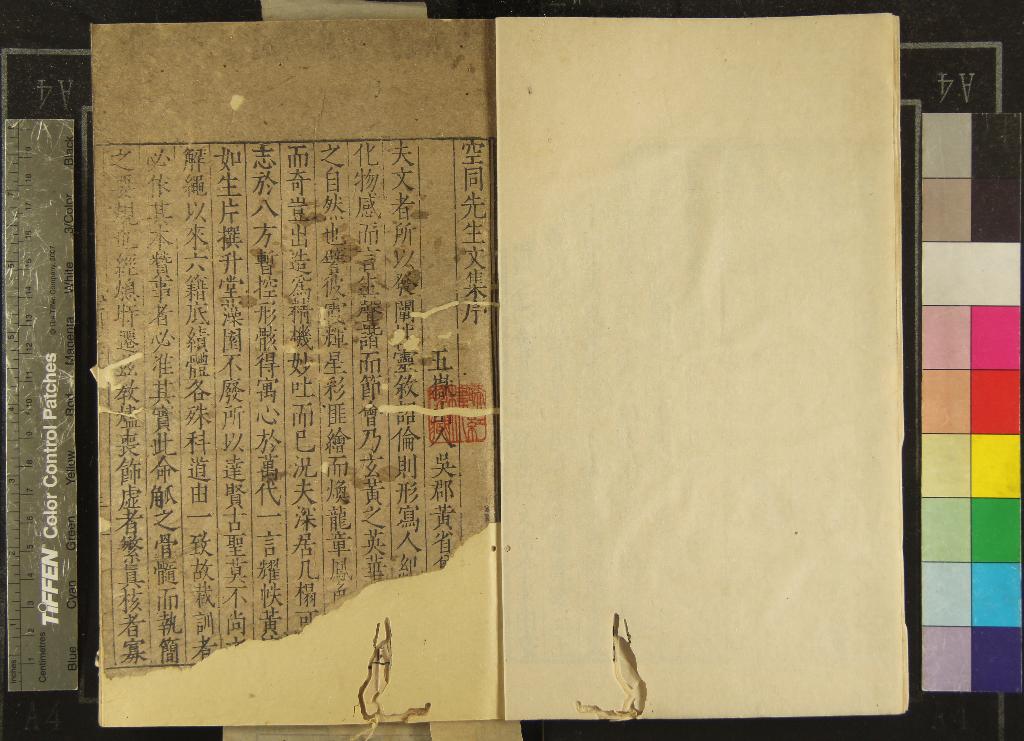 空同先生文集序
五嶽山人吳郡黃省
夫文者所以發闡性靈敘詔倫則形寫人紀
化物感而言生聲諧而節會乃玄黃之英華
之自然也譬彼雲輝星彩匪繪而煥龍章鳳
而奇豈出造寫精機妙吐而已况夫深居几榻
志於八方暫控形骸得寓心於萬代一言耀帙黃
如生片撰升堂藻園不廢所以達賢古聖莫不尚
解繩以來六籍底績體各殊科道由一致故裁訓者
必依其本贊事者必准其實此命觚之骨髓而執簡
之要規也經熄遷教喪飾虛者繁真核者寡
A4
A4
TIFFEN Color Control Patches
© The Tiffen Company, 2007
Inches
Centimetres
Blue
Cyan
Green
Yellow
Red
Magenta
White
3/Color
Black